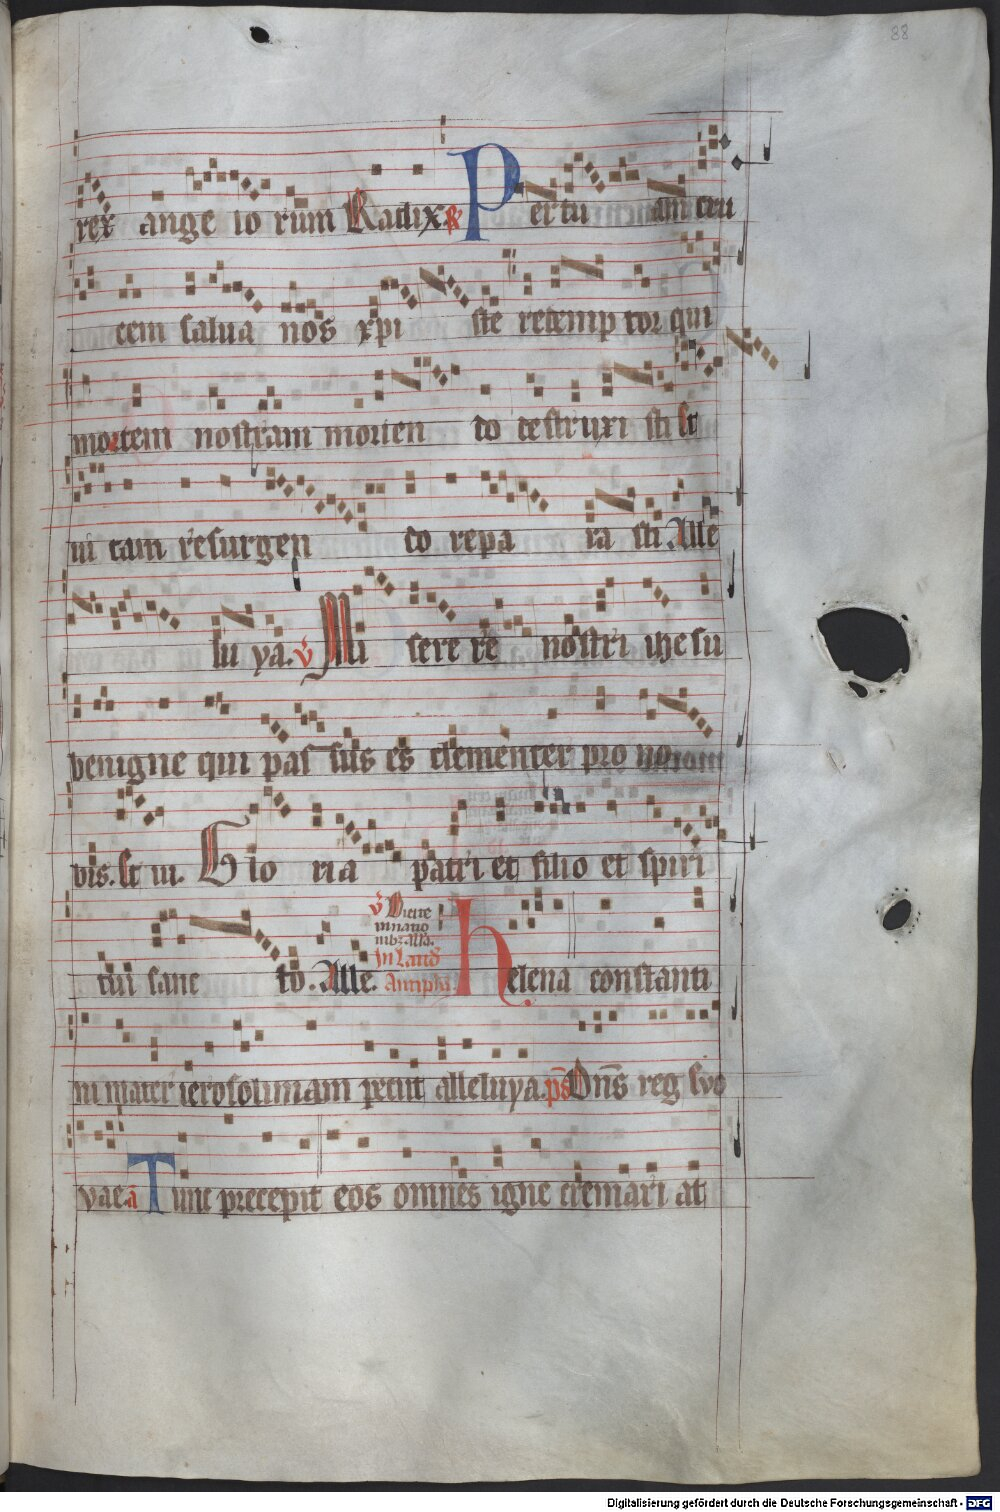 88
rex ange lo rum Radix. R Per tu am cru
cem salua nos xpi ste redemp tor qui
mortem nostram morien do destruxi sti Et
ui tam resurgen do repa ra sti Alle
lu ya. V Mi sere re nostri ihesu
benigne qui pas sus es clementer pro no
bis. Et ui. Glo ria patri et filio et spiri
tui sanc to. Alle.
V Dicite
in natio
nibz. Alla.
In Laud
Antipha
helena constanti
ni mater ierosolimam peciit alleluya. ps Dns reg Evo
vae a Tunc precepit eos omnes igne cremari at
Digitalisierung gefördert durch die Deutsche Forschungsgemeinschaft - DFG